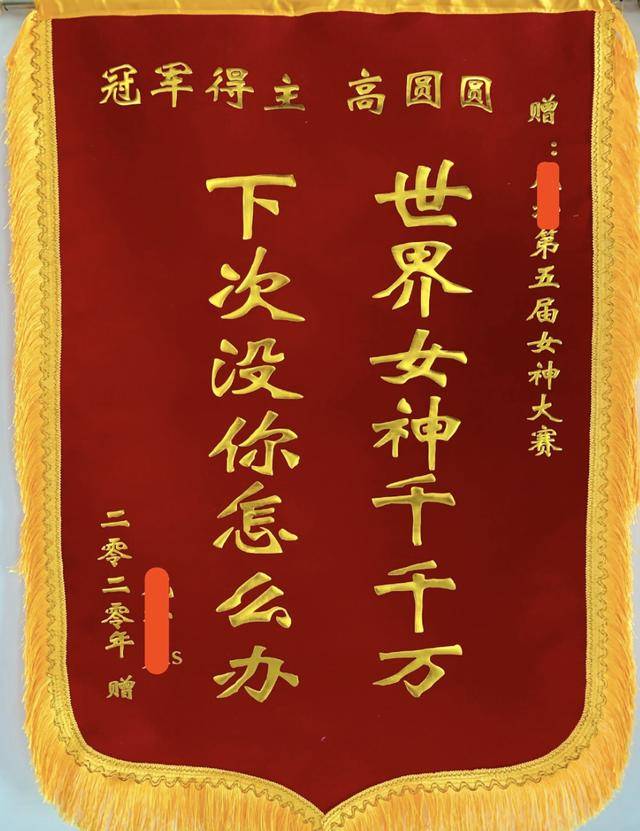 赠：
第五届女神大赛
冠军得主 高圆圆
世界女神千千万
下次没你怎么办
s
二零二零年 赠